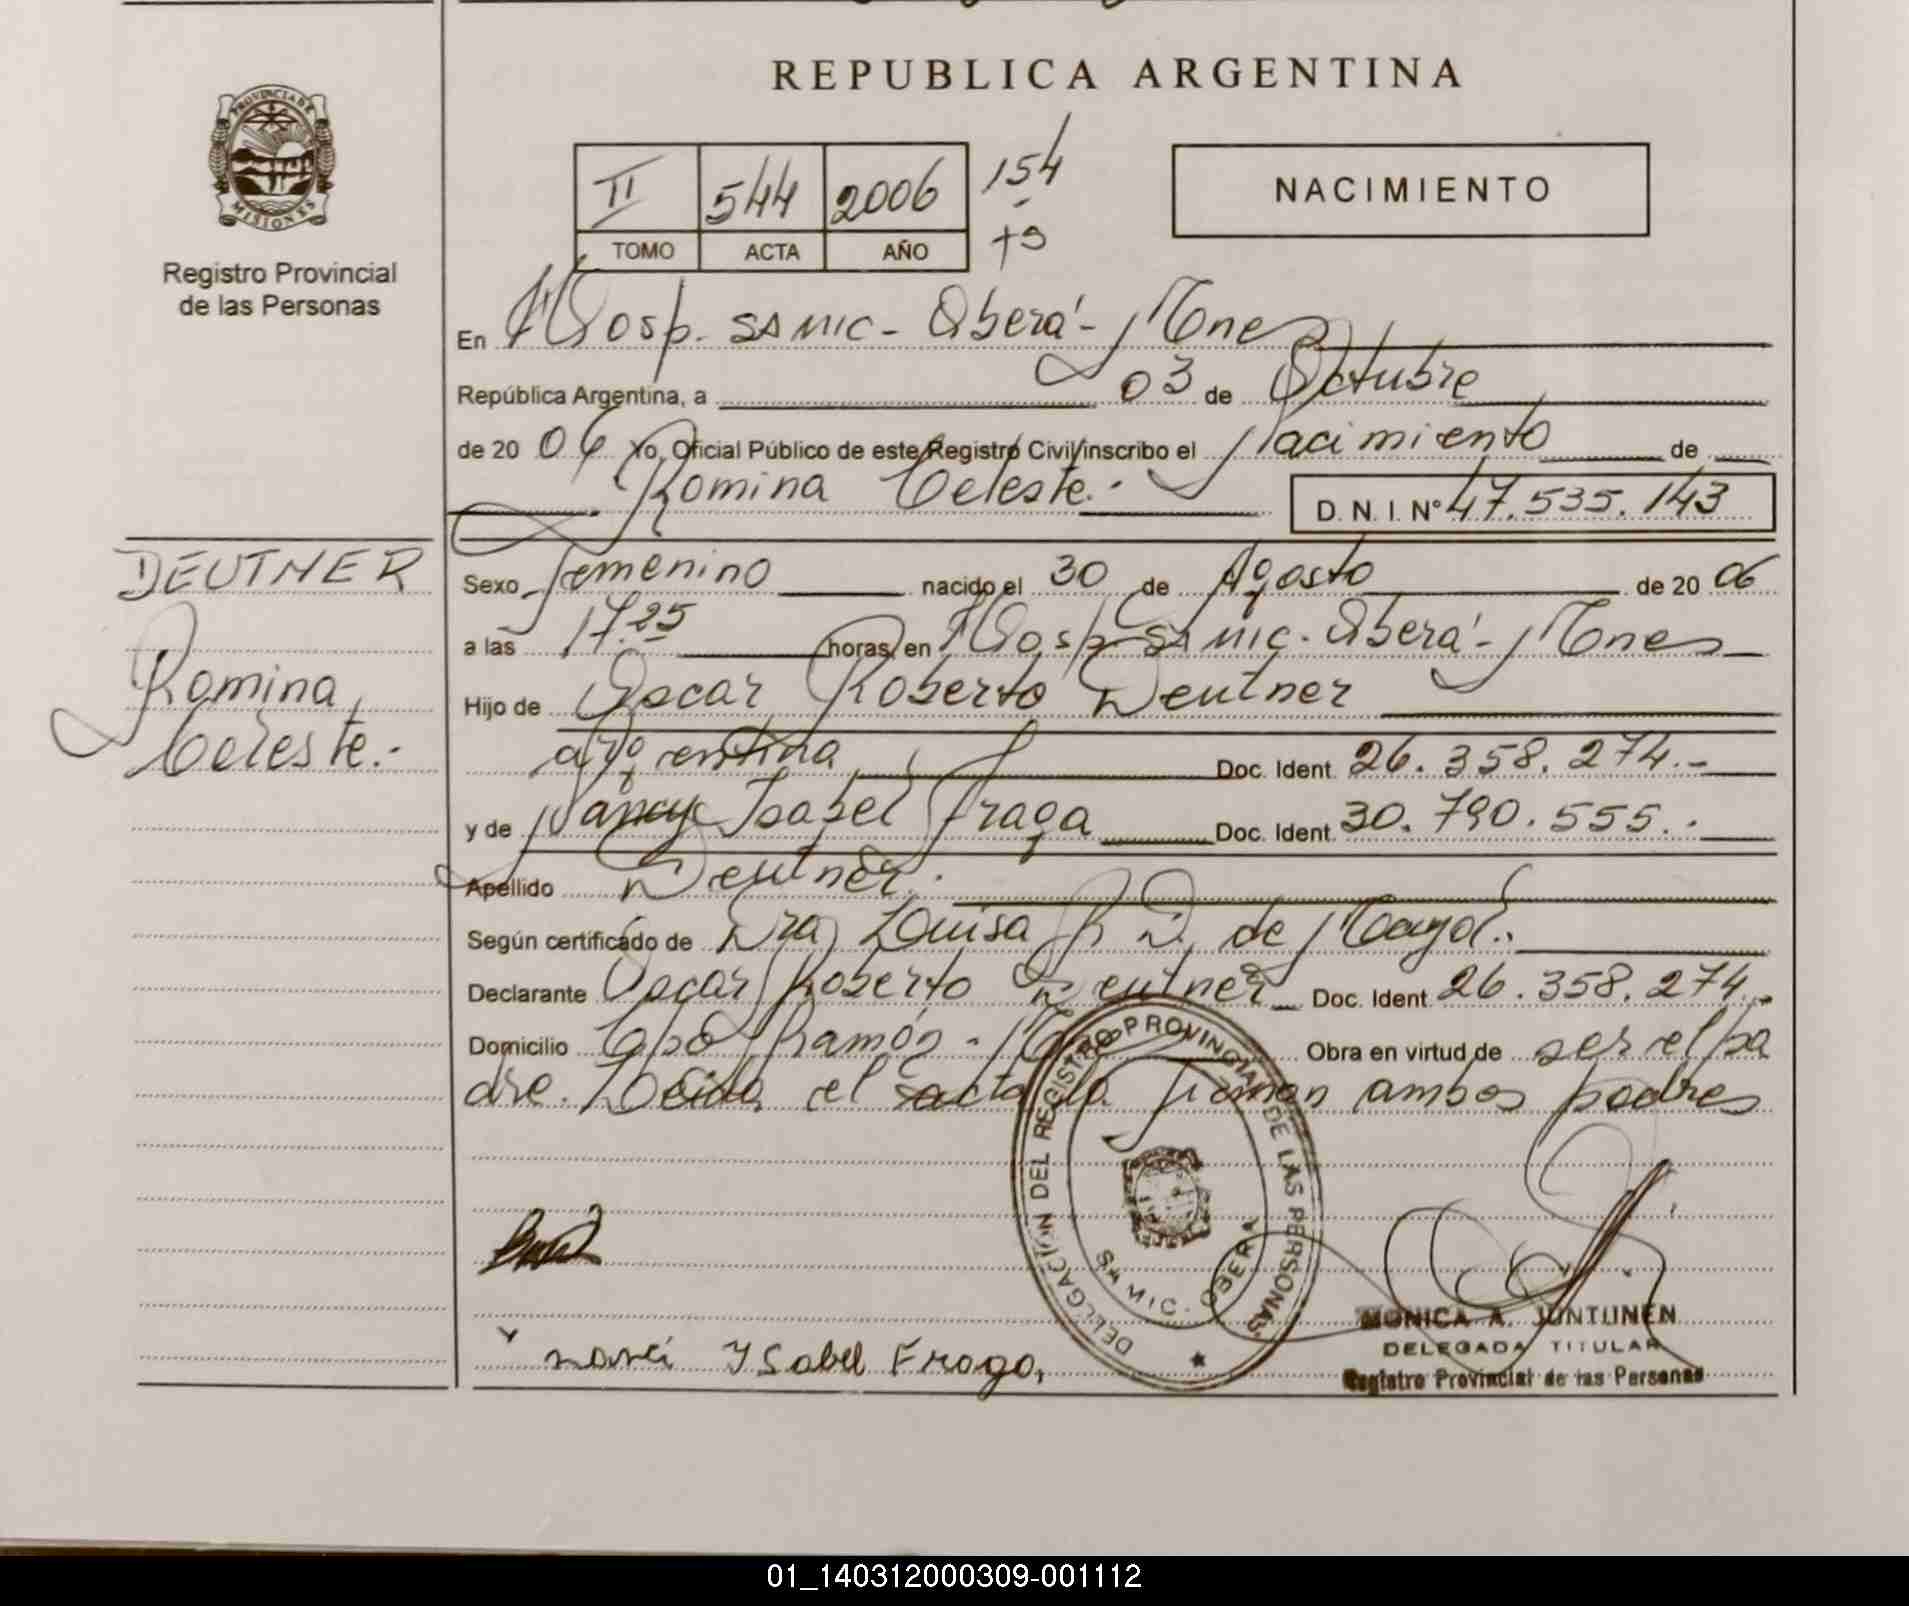 REPUBLICA ARGENTINA
PROVINCIA DE
MISIONES
Registro Provincial
de las Personas
II 544 2006
TOMO ACTA AÑO
154
NACIMIENTO
En Hosp. SAMIC - Oberá - Mnes
República Argentina, a 03 de Octubre
de 2006 Yo, Oficial Público de este Registro Civil inscribo el Nacimiento de
Romina Celeste.- D. N. I. N° 47.535.143
DEUTNER
Romina
Celeste.-
Sexo Femenino nacido el 30 de Agosto de 2006
a las 17.25 horas, en Hosp SAMIC. Oberá - Mnes
Hijo de Oscar Roberto Deutner
argentina Doc. Ident. 26.358.274.-
y de Nancy Isabel Fraga Doc. Ident. 30.790.555.-
Apellido Deutner.-
Según certificado de Dra Luisa R D. de Mayol.-
Declarante Oscar Roberto Deutner Doc. Ident. 26.358.274.-
Domicilio Cpo Ramón - Obra en virtud de ser el pa
dre. Leida el acta la firman ambos padres
DELEGACION DEL REGISTRO PROVINCIAL DE LAS PERSONAS
SAMIC. OBERA
MONICA A. JUNTUNEN
DELEGADA TITULAR
Registro Provincial de las Personas
Isabel Fraga,
01_140312000309-001112